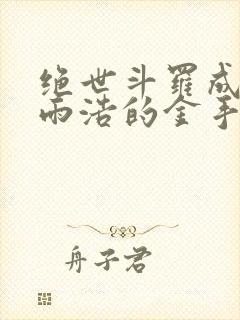 绝世斗罗成
雨浩的金手
舟子君